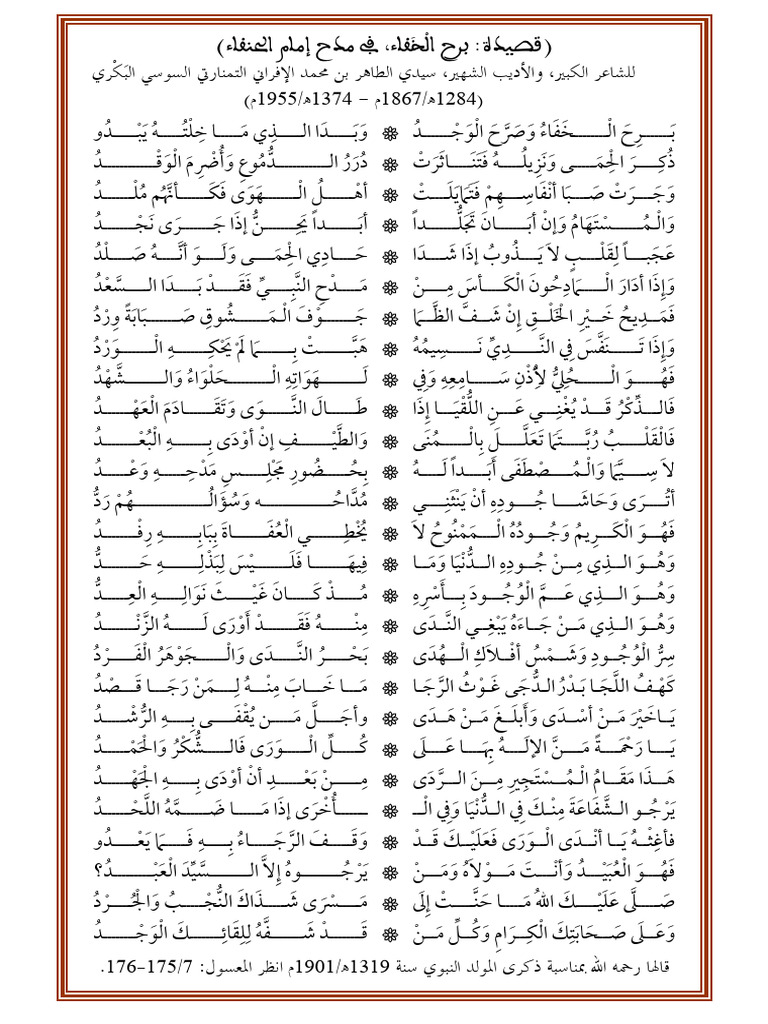 (قصيدة: برح الْخَفاء، في مدح إمام الحنفاء)
للشاعر الكبير، والأديب الشهير، سيدي الطاهر بن محمد الإفراني التمنارتي السوسي البَكْري
(1284ه/1867م – 1374ه/1955م)
بَرِحَ الْخَفَاءُ وَصَرَّحَ الْوَجْدُ ۞ وَبَدَا الذِي مَا خِلْتُهُ يَبْدُو
ذُكِرَ الْحِمَى وَنَزِيلُهُ فَتَنَاثَرَتْ ۞ دُرَرُ الدُّمُوعِ وَأُضْرِمَ الْوَقْدُ
وَجَرَتْ صَبَا أنْفَاسِهِمْ فَتَمَايَلَتْ ۞ أهْلُ الْهَوَى فَكَأنَّهُم مُلْدُ
وَالْمُسْتَهَامُ وَإنْ أبَانَ تَجَلُّداً ۞ أبَداً يَحِنُّ إذَا جَرَى نَجْدُ
عَجَباً لِقَلْبٍ لاَ يَذُوبُ إذَا شَدَا ۞ حَادِي الْحِمَى وَلَوَ أنَّهُ صَلْدُ
وَإذَا أدَارَ الْمَادِحُونَ الْكَأسَ مِنْ ۞ مَدْحِ النَّبِيِّ فَقَدْ بَدَا السَّعْدُ
فَمَدِيحُ خَيْرِ الْخَلْقِ إنْ شَفَّ الظَّمَا ۞ جَوْفَ الْمَشُوقِ صَبَابَةً وِرْدُ
وَإذَا تَنَفَّسَ فِي النَّدِيِّ نَسِيمُهُ ۞ هَبَّتْ بِمَا لَمْ يَحْكِهِ الْوَرْدُ
فَهُوَ الْحُلِيُّ لأُذْنِ سَامِعِهِ وَفِي ۞ لَهَوَاتِهِ الْحَلْوَاءُ وَالشَّهْدُ
فَالذِّكْرُ قَدْ يُغْنِي عَنِ اللُّقْيَا إذَا ۞ طَالَ النَّوَى وَتَقَادَمَ الْعَهْدُ
فَالْقَلْبُ رُبَّتَمَا تَعَلَّلَ بِالْمُنَى ۞ وَالطَّيْفِ إنْ أوْدَى بِهِ الْبُعْدُ
لاَ سِيَّمَا وَالْمُصْطَفَى أبَداً لَهُ ۞ بِحُضُورِ مَجْلِسِ مَدْحِهِ وَعْدُ
أتُرَى وَحَاشَا جُودِهِ أنْ يَنْثَنِي ۞ مُدَّاحُهُ وَسُؤَالُهُمْ رَدُّ
فَهُوَ الْكَرِيمُ وَجُودُهُ الْمَمْنُوحُ لاَ ۞ يُخْطِي الْعُفَاةَ بِبَابِهِ رِفْدُ
وَهُوَ الذِي مِنْ جُودِهِ الدُّنْيَا وَمَا ۞ فِيهَا فَلَيْسَ لِبَذْلِهِ حَدُّ
وَهُوَ الذِي عَمَّ الْوُجُودَ بِأَسْرِهِ ۞ مُذْ كَانَ غَيْثَ نَوَالِهِ الْعِدُّ
وَهُوَ الذِي مَنْ جَاءَهُ يَبْغِي النَّدَى ۞ مِنْهُ فَقَدْ أوْرَى لَهُ الزَّنْدُ
سِرُّ الْوُجُودِ وَشَمْسُ أفْلاَكِ الْهُدَى ۞ بَحْرُ النَّدَى وَالْجَوْهَرُ الْفَرْدُ
كَهْفُ اللَّجَا بَدْرُ الدُّجَى غَوْثُ الرَّجَا ۞ مَا خَابَ مِنْهُ لِمَنْ رَجَا قَصْدُ
يَاخَيْرَ مَنْ أسْدَى وَأَبلَغَ مَنْ هَدَى ۞ وأجَلَّ مَن يُقْفَى بِهِ الرُّشْدُ
يَا رَحْمَةً مَنَّ الإلَهُ بِهَا عَلَى ۞ كُلِّ الْوَرَى فَالشُّكْرُ وَالْحَمْدُ
هَذَا مَقَامُ الْمُسْتَجِيرِ مِنَ الرَّدَى ۞ مِنْ بَعْدِ أنْ أوْدَى بِهِ الْجَهْدُ
يَرْجُو الشَّفَاعَةَ مِنْكَ فِي الدُّنْيَا وَفِي الْـ ۞ ـأُخْرَى إذَا مَا ضَمَّهُ اللَّحْدُ
فأغِثْهُ يَا أنْدَى الْوَرَى فَعَلَيْكَ قَدْ ۞ وَقَفَ الرَّجَاءُ بِهِ فَمَا يَعْدُو
فَهُوَ الْعُبَيْدُ وَأنْتَ مَوْلاَهُ وَمَنْ ۞ يَرْجُوهُ إلاَّ السَّيِّدَ الْعَبْدُ؟
صَلَّى عَلَيْكَ اللهُ مَا حَنَّتْ إلَى ۞ مَسْرَى شَذَاكَ النُّجْبُ وَالْجُرْدُ
وَعَلَى صَحَابَتِكَ الْكِرَامِ وَكُلِّ مَنْ ۞ قَدْ شَفَّهُ لِلِقَائِكَ الْوَجْدُ
قالها رحمه الله بمناسبة ذكرى المولد النبوي سنة 1319ه/1901م انظر المعسول: 175/7–176.